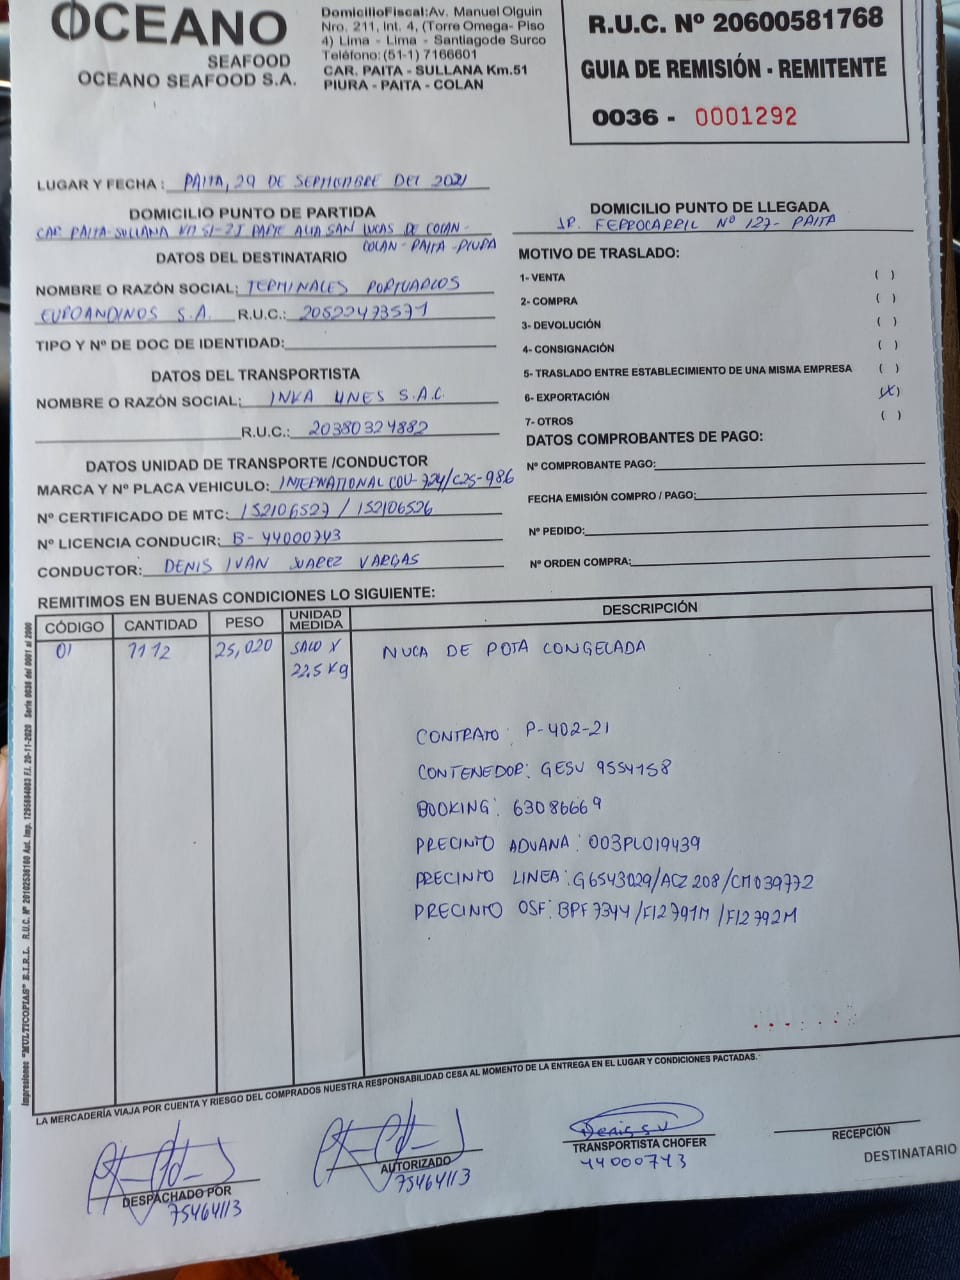 OCEANO
SEAFOOD
OCEANO SEAFOOD S.A.
DomicilioFiscal:Av. Manuel Olguin
Nro. 211, Int. 4, (Torre Omega- Piso
4) Lima - Lima - Santiagode Surco
Teléfono: (51-1) 7166601
CAR. PAITA - SULLANA Km.51
PIURA - PAITA - COLAN
R.U.C. Nº 20600581768
GUIA DE REMISIÓN - REMITENTE
0036 - 0001292
LUGAR Y FECHA : PAITA, 29 DE SEPTIEMBRE DEL 2021
DOMICILIO PUNTO DE PARTIDA
CAR. PAITA-SULLANA KM 51-ZI PARTE ALTA SAN LUCAS DE COLAN-
COLAN-PAITA-PIURA
DOMICILIO PUNTO DE LLEGADA
JR. FERROCARRIL Nº 127- PAITA
DATOS DEL DESTINATARIO
NOMBRE O RAZÓN SOCIAL: TERMINALES PORTUARIOS
EUROANDINOS S.A. R.U.C.: 20522473571
TIPO Y Nº DE DOC DE IDENTIDAD:
DATOS DEL TRANSPORTISTA
NOMBRE O RAZÓN SOCIAL: INKA LINES S.A.C.
R.U.C.: 20380324882
DATOS UNIDAD DE TRANSPORTE /CONDUCTOR
MARCA Y Nº PLACA VEHICULO: INTERNATIONAL COU-724/C2S-986
Nº CERTIFICADO DE MTC: 152106527 / 152106526
Nº LICENCIA CONDUCIR: B-44000743
CONDUCTOR: DENIS IVAN JUAREZ VARGAS
MOTIVO DE TRASLADO:
1- VENTA ( )
2- COMPRA ( )
3- DEVOLUCIÓN ( )
4- CONSIGNACIÓN ( )
5- TRASLADO ENTRE ESTABLECIMIENTO DE UNA MISMA EMPRESA ( )
6- EXPORTACIÓN (X)
7- OTROS ( )
DATOS COMPROBANTES DE PAGO:
Nº COMPROBANTE PAGO:
FECHA EMISIÓN COMPRO / PAGO:
Nº PEDIDO:
Nº ORDEN COMPRA:
REMITIMOS EN BUENAS CONDICIONES LO SIGUIENTE:
CÓDIGO CANTIDAD PESO UNIDAD MEDIDA DESCRIPCIÓN
01 1112 25,020 SACO X NUCA DE POTA CONGELADA
22.5 Kg
CONTRATO: P-402-21
CONTENEDOR: GESU 9554158
BOOKING: 63086669
PRECINTO ADUANA: 003PL019439
PRECINTO LINEA: G6543029/ACZ208/CM039772
PRECINTO OSF: BPF7344/F12791M/F12792M
Impresiones "MULTICOPIAS" E.I.R.L. R.U.C. Nº 20102536160 Aut. Imp. 1295884083 F.I. 20-11-2020 Serie 0036 del 0001 al 2000
LA MERCADERÍA VIAJA POR CUENTA Y RIESGO DEL COMPRADOS NUESTRA RESPONSABILIDAD CESA AL MOMENTO DE LA ENTREGA EN EL LUGAR Y CONDICIONES PACTADAS.
DESPACHADO POR
75464113
AUTORIZADO
75464113
Denis
TRANSPORTISTA CHOFER
44000743
RECEPCIÓN
DESTINATARIO